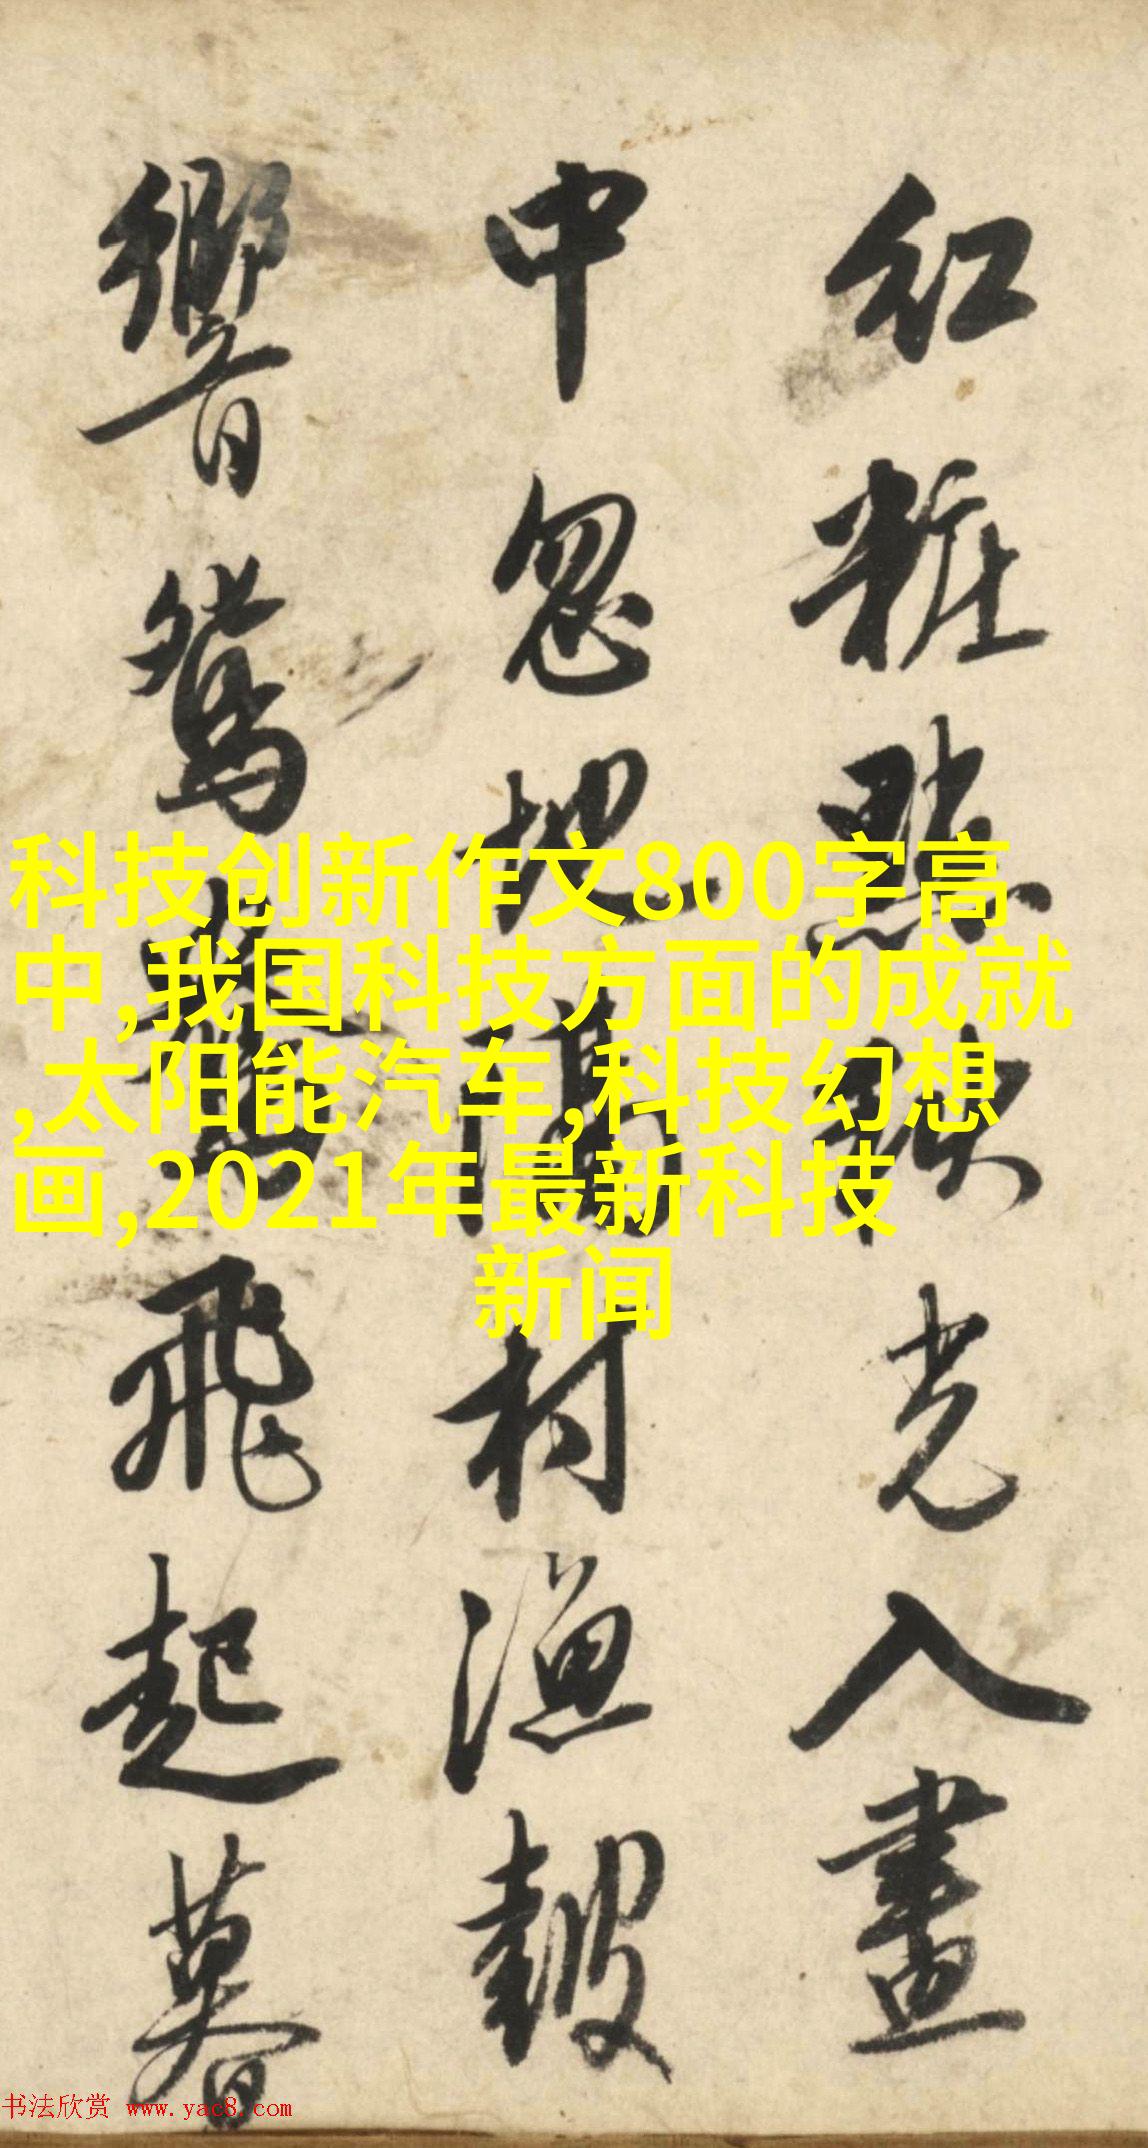 紅粧點秋光入畫
中忽地隔村漁皷
響鴛鴦飛起暮
科技创新作文800字高
中,我国科技方面的成就
,太阳能汽车,科技幻想
画,2021年最新科技
新闻
书法欣赏 www.yac8.com